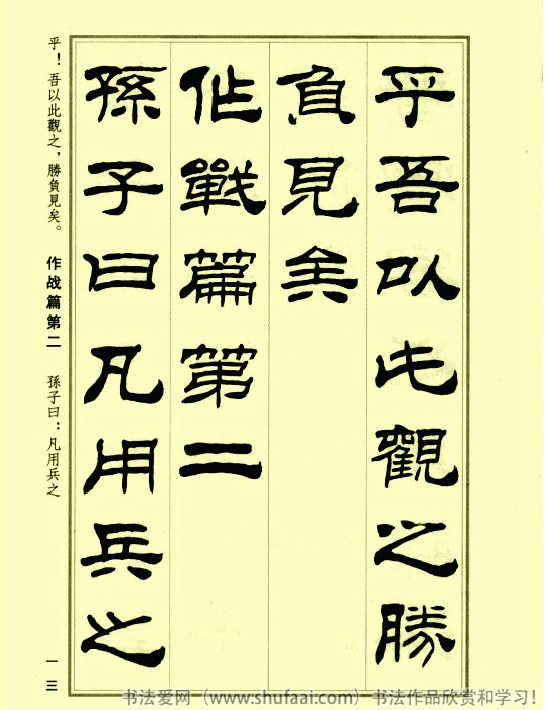 乎吾以此觀之勝
負見矣
作戰篇第二
孫子曰凡用兵之
乎！吾以此觀之，勝負見矣。 作战篇第二 孫子曰：凡用兵之
一三
书法爱网（www.shufaai.com）书法作品欣赏和学习！